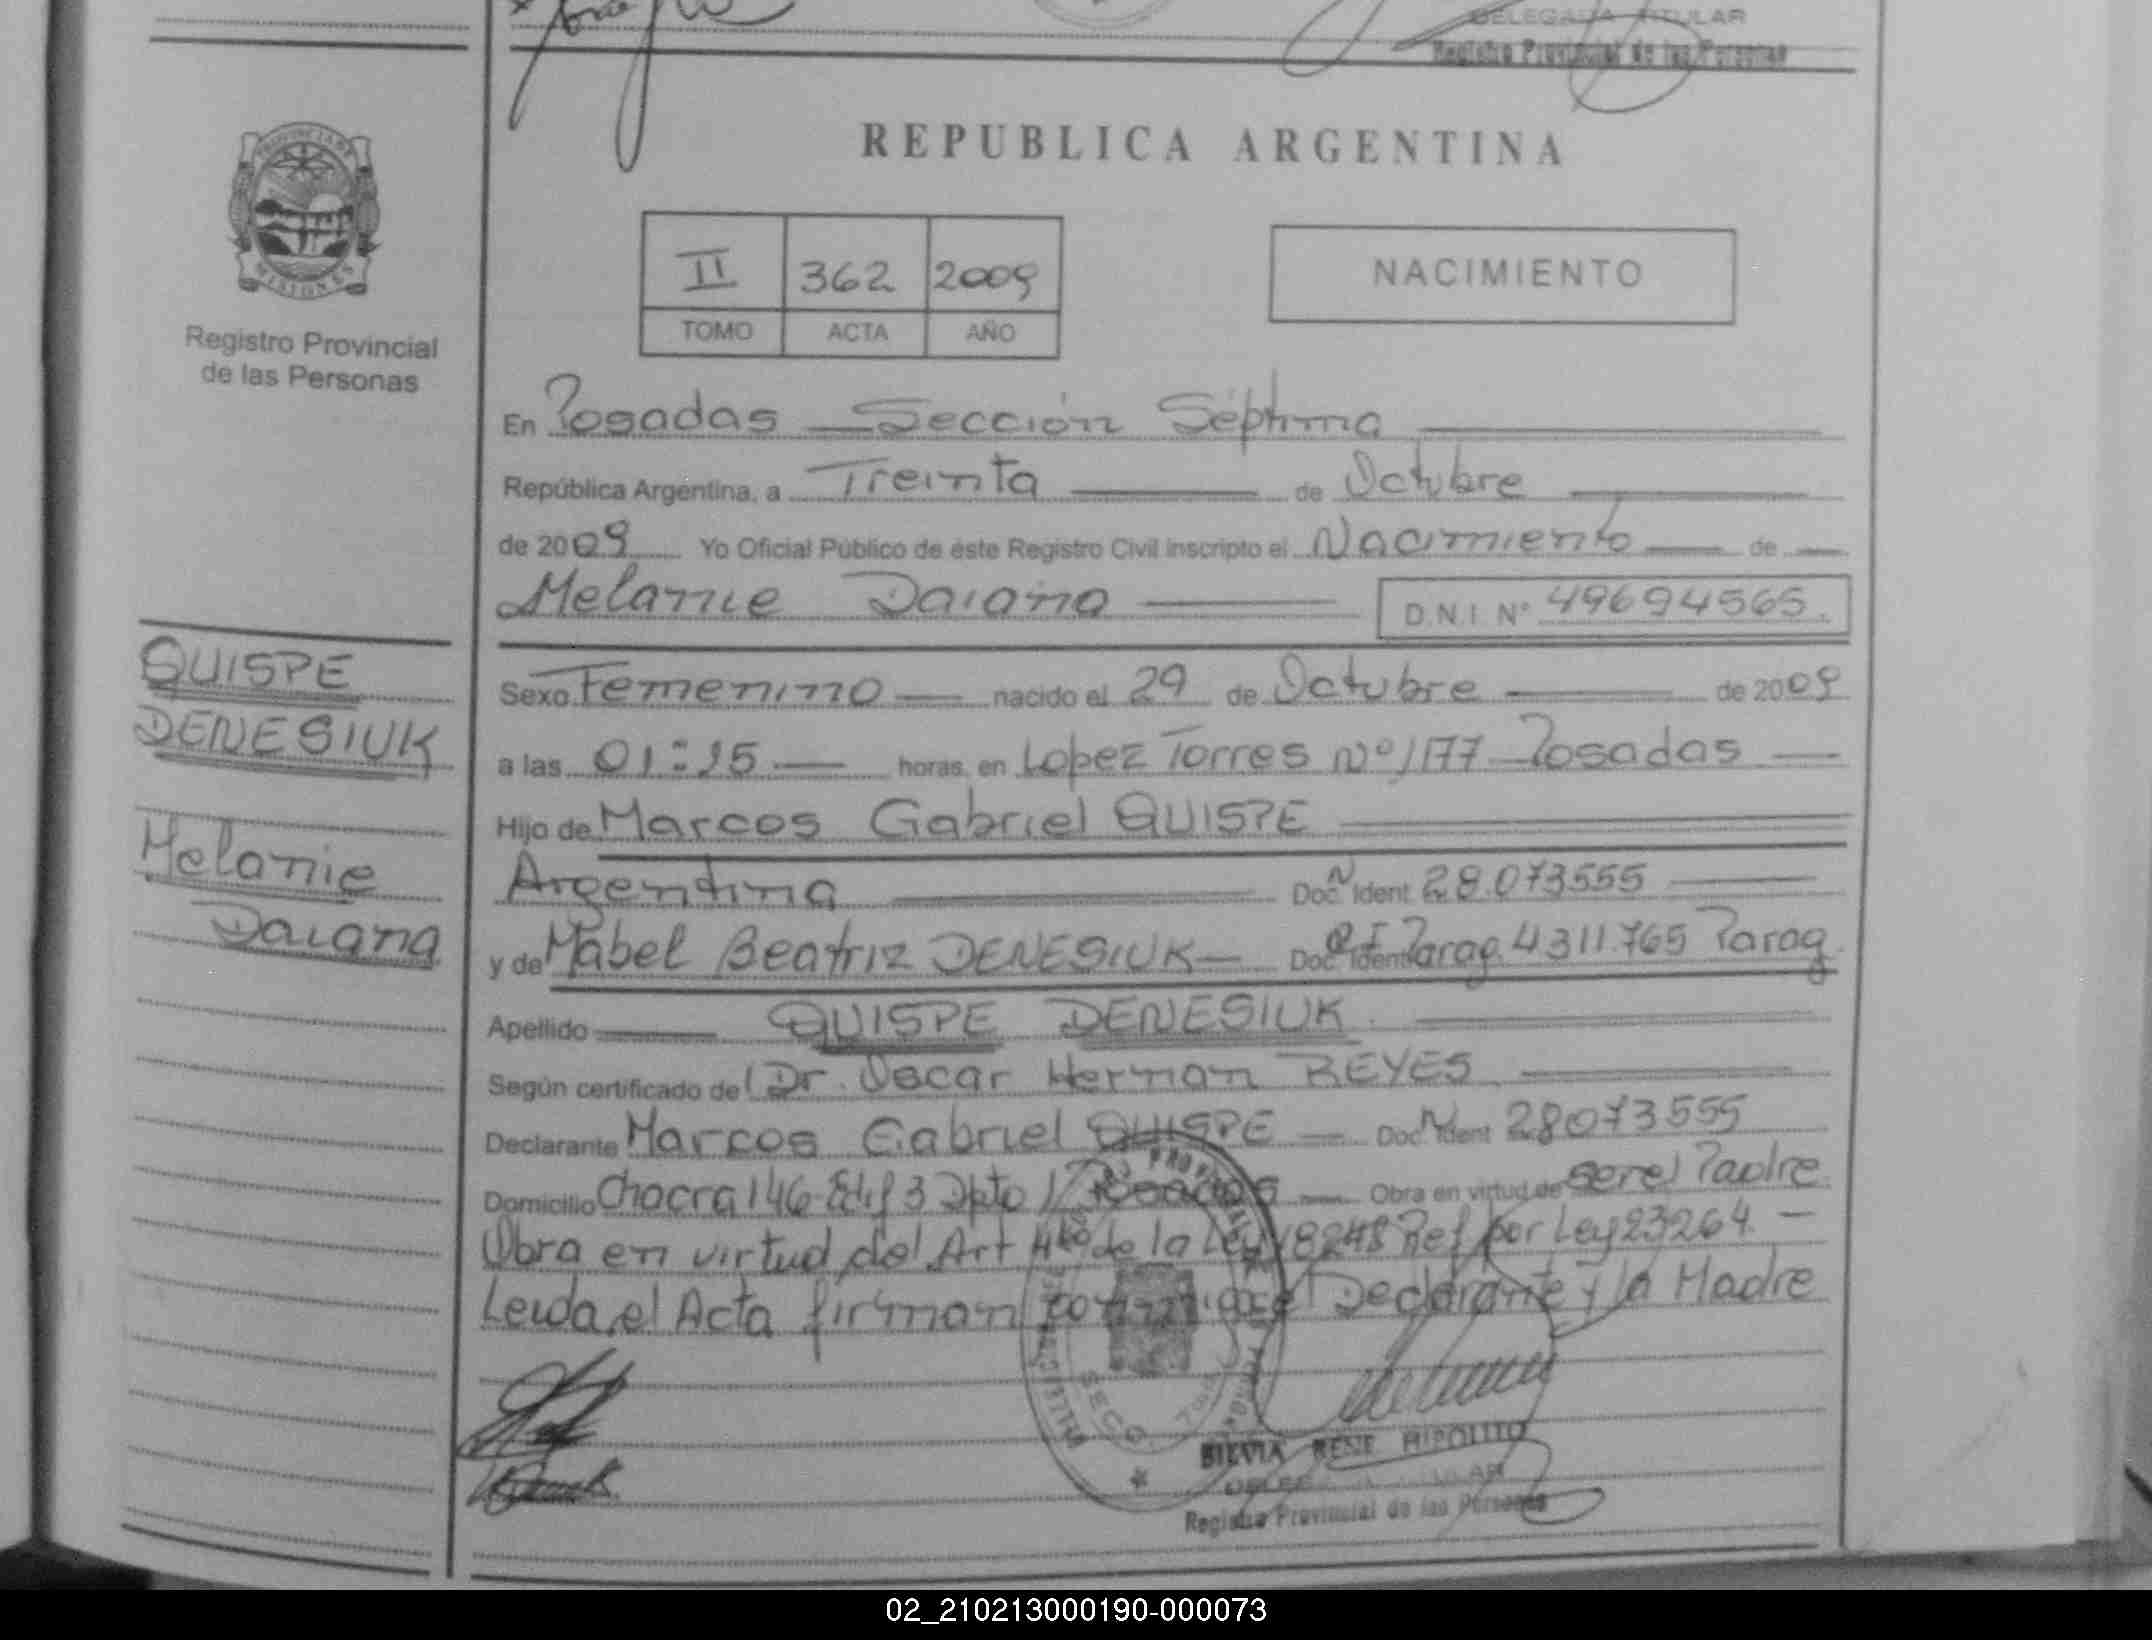 DELEGADA TITULAR
Registro Provincial de las Personas
PROVINCIA DE
MISIONES
Registro Provincial
de las Personas
REPUBLICA ARGENTINA
II 362 2009
TOMO ACTA AÑO
NACIMIENTO
En Posadas Sección Séptima
República Argentina, a Treinta de Octubre
de 2009 Yo Oficial Público de éste Registro Civil inscripto el Nacimiento de
Melanie Daiana D.N.I. N° 49694565.
QUISPE
DENESIUK
Melanie
Daiana
Sexo Femenino nacido el 29 de Octubre de 2009
a las 01:15 horas, en Lopez Torres Nº 1177 Posadas
Hijo de Marcos Gabriel QUISPE
Argentina Doc. N Ident 28.073555
y de Mabel Beatriz DENESIUK Doc. Ident Parag. 4311.765 Parag.
Apellido QUISPE DENESIUK
Según certificado de Dr. Oscar Hernan REYES
Declarante Marcos Gabriel QUISPE Doc. N Ident 28073555
Domicilio Chacra 146 Edif 3 Dpto 1 Posadas Obra en virtud de ser el Padre
Obra en virtud del Art 4to de la Ley 18248 Ref por Ley 23264
Leida el Acta firman conmigo el Declarante y la Madre
SILVIA RENE HIPOLITO
DELEGADA TITULAR
Registro Provincial de las Personas
02_210213000190-000073